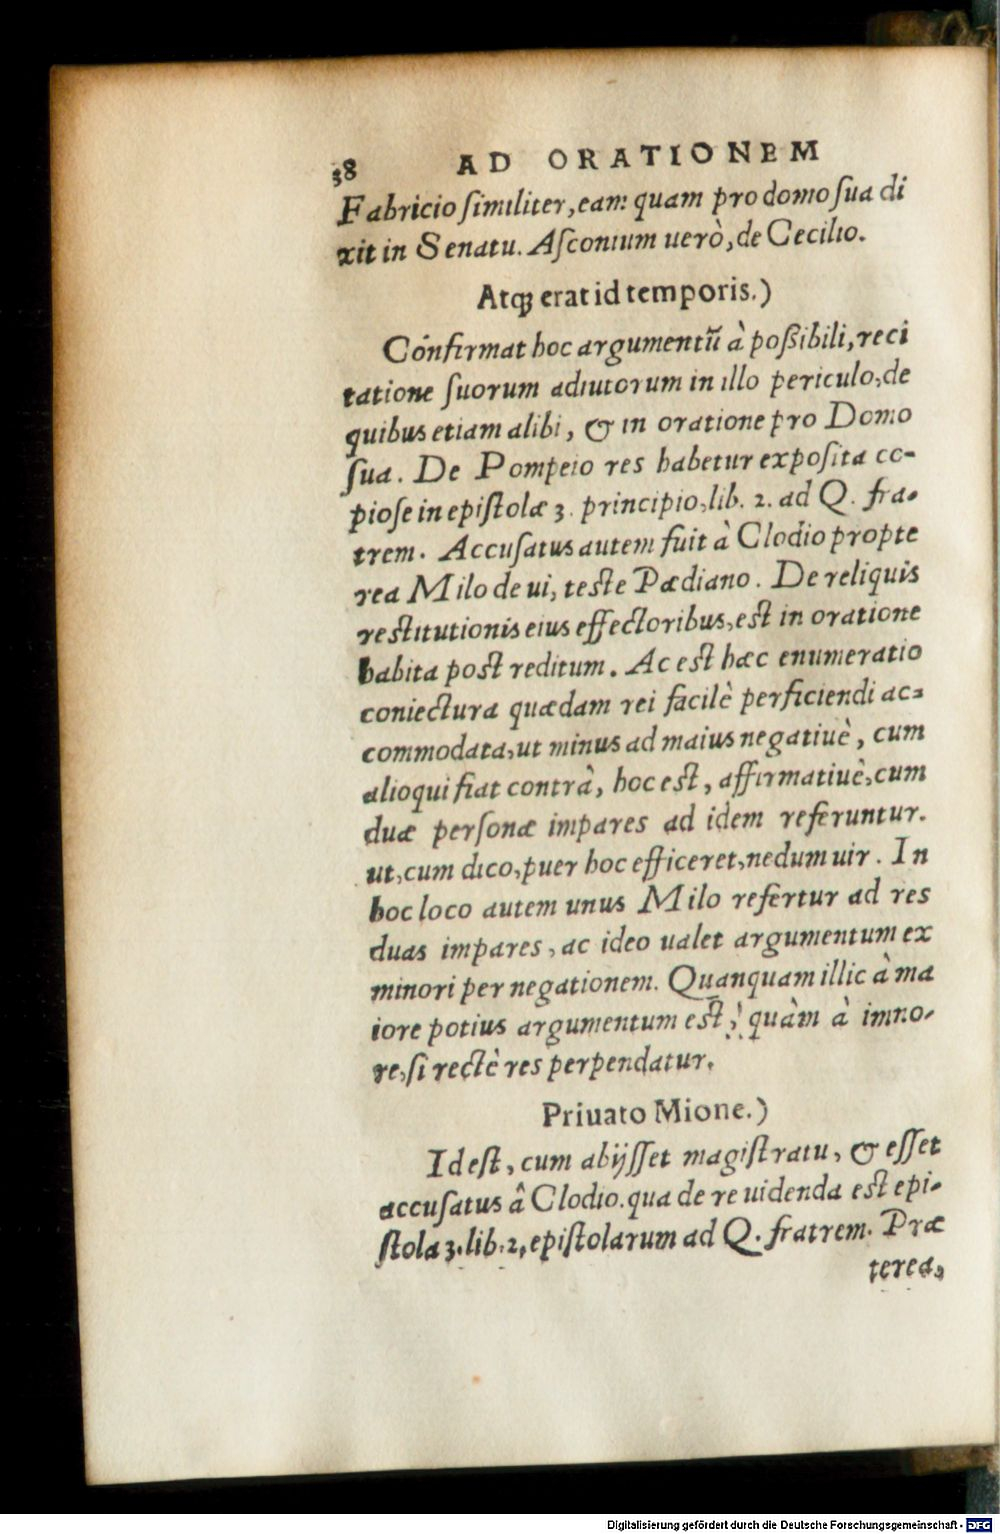 38 AD ORATIONEM
Fabricio ſimiliter, eam quam pro domo ſua di
xit in Senatu. Aſconium uerò, de Cecilio.
Atqꝫ erat id temporis.)
Cōnfirmat hoc argumentū à poßibili, reci
tatione ſuorum adiutorum in illo periculo, de
quibus etiam alibi, & in oratione pro Domo
ſua. De Pompeio res habetur expoſita co-
pioſe in epiſtolæ 3. principio, lib. 2. ad Q. fra-
trem. Accuſatus autem fuit à Clodio propte
rea Milo de ui, teſte Pædiano. De reliquis
reſtitutionis eius effectoribus, eſt in oratione
habita poſt reditum. Ac eſt hæc enumeratio
coniectura quædam rei facilè perficiendi ac=
commodata, ut minus ad maius negatiuè, cum
alioqui fiat contrà, hoc eſt, affirmatiuè, cum
duæ perſonæ impares ad idem referuntur.
ut, cum dico, puer hoc efficeret, nedum uir. In
hoc loco autem unus Milo refertur ad res
duas impares, ac ideo ualet argumentum ex
minori per negationem. Quanquam illic à ma
iore potius argumentum eſt, quàm à imno-
re, ſi rectè res perpendatur.
Priuato Mione.)
Id eſt, cum abijſſet magiſtratu, & eſſet
accuſatus â Clodio. qua de re uidenda eſt epi-
ſtola 3. lib. 2, epiſtolarum ad Q. fratrem. Præ
terea,
Digitalisierung gefördert durch die Deutsche Forschungsgemeinschaft - DFG